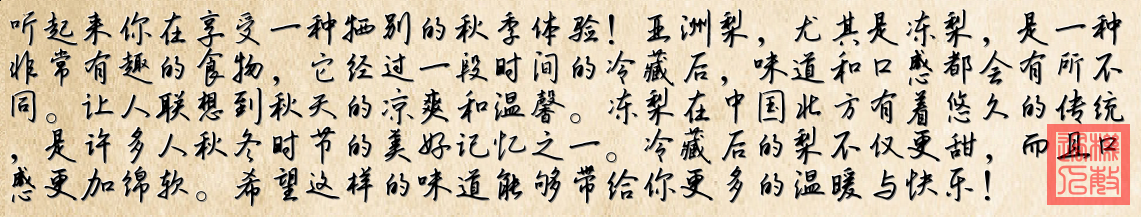 听起来你在享受一种牺别的秋季体验！亚洲梨，尤其是冻梨，是一种
非常有趣的食物，它经过一段时间的冷藏后，味道和口感都会有所不
同。让人联想到秋天的凉爽和温馨。冻梨在中国北方有着悠久的传统
，是许多人秋冬时节的美好记忆之一。冷藏后的梨不仅更甜，而且口
感更加绵软。希望这样的味道能够带给你更多的温暖与快乐！